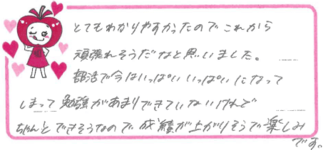 とてもわかりやすかったのでこれから
頑張れそうだなと思いました。
部活で今はいっぱいいっぱいになって
しまって勉強があまりできていないけど
ちゃんとできそうなので成績が上がりそうで楽しみ
です。